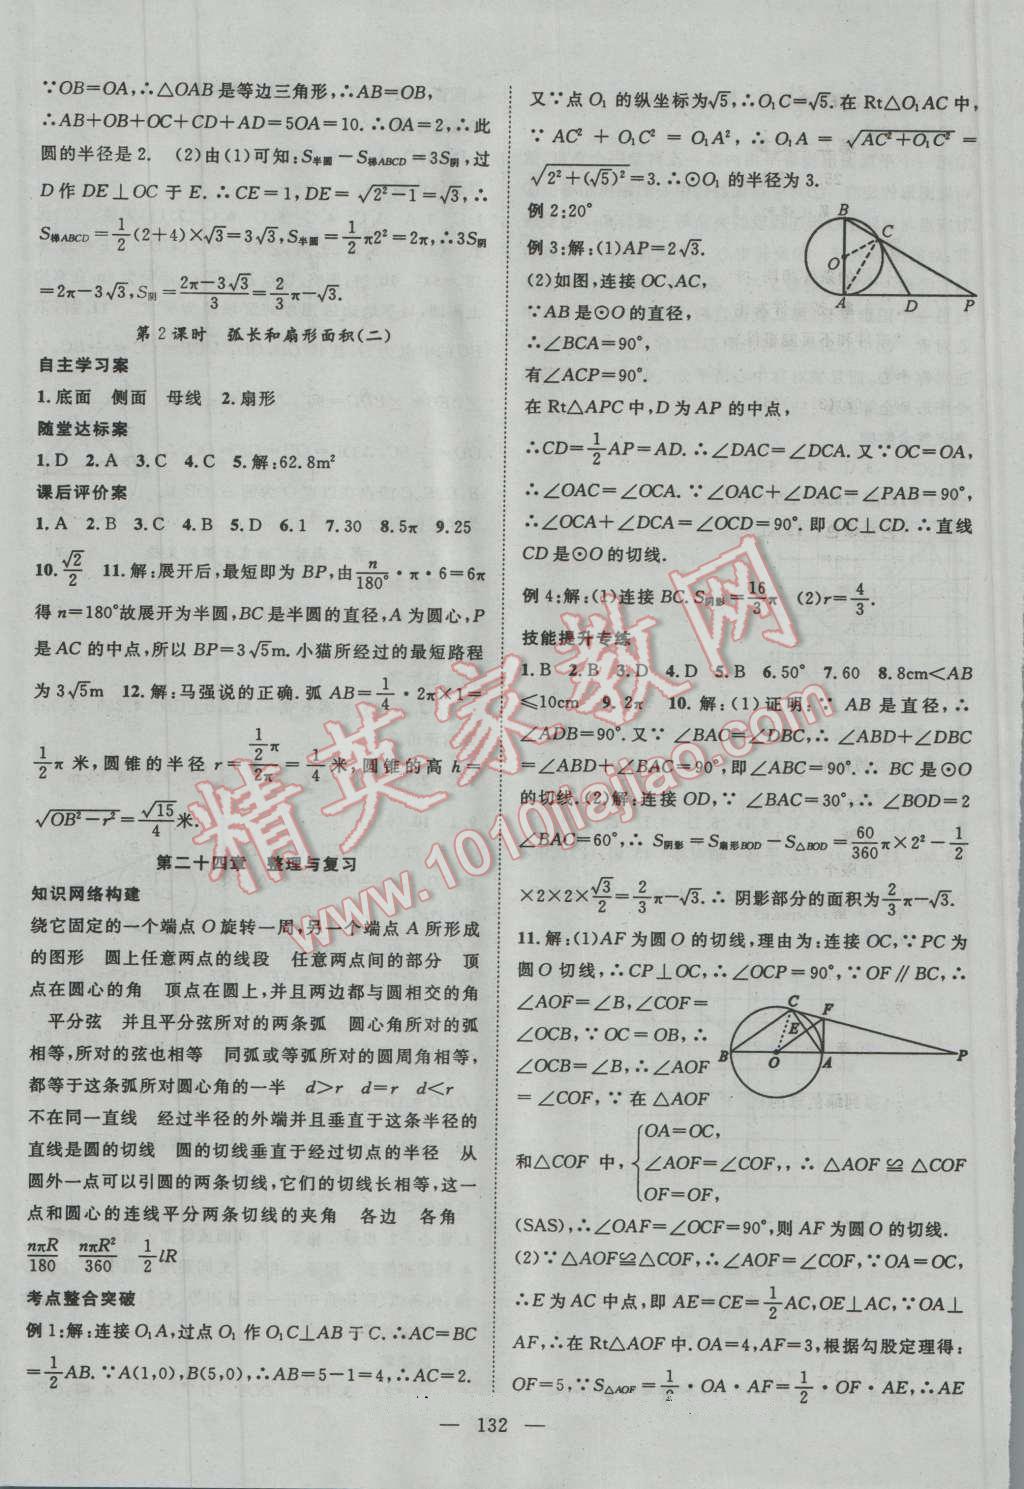 ∵OB=OA,∴△OAB是等边三角形,∴AB=OB,
∴AB+OB+OC+CD+AD=5OA=10.∴OA=2,∴此
圆的半径是2. (2)由(1)可知:S半圆-S梯ABCD=3S阴,过
D作DE⊥OC于E.∴CE=1,DE=√(2²-1)=√3,∴
S梯ABCD=1/2(2+4)×√3=3√3,S半圆=1/2π2²=2π,∴3S阴
=2π-3√3,S阴=(2π-3√3)/3=2/3π-√3.
第2课时 弧长和扇形面积(二)
自主学习案
1.底面 侧面 母线 2.扇形
随堂达标案
1.D 2.A 3.C 4.C 5.解:62.8m²
课后评价案
1.A 2.B 3.C 4.B 5.D 6.1 7.30 8.5π 9.25
10.√2/2 11.解:展开后,最短即为BP,由n/180°·π·6=6π
得n=180°故展开为半圆,BC是半圆的直径,A为圆心,P
是AC的中点,所以BP=3√5m.小猫所经过的最短路程
为3√5m 12.解:马强说的正确.弧AB=1/4·2π×1=
1/2π米,圆锥的半径r=(1/2π)/2π=1/4米,圆锥的高h=
√(OB²-r²)=√15/4米.
第二十四章 整理与复习
知识网络构建
绕它固定的一个端点O旋转一周,另一个端点A所形成
的图形 圆上任意两点的线段 任意两点间的部分 顶
点在圆心的角 顶点在圆上,并且两边都与圆相交的角
平分弦 并且平分弦所对的两条弧 圆心角所对的弧
相等,所对的弦也相等 同弧或等弧所对的圆周角相等,
都等于这条弧所对圆心角的一半 d>r d=r d<r
不在同一直线 经过半径的外端并且垂直于这条半径的
直线是圆的切线 圆的切线垂直于经过切点的半径 从
圆外一点可以引圆的两条切线,它们的切线长相等,这一
点和圆心的连线平分两条切线的夹角 各边 各角
nπR/180 nπR²/360 1/2lR
考点整合突破
例1:解:连接O₁A,过点O₁作O₁C⊥AB于C.∴AC=BC
=1/2AB.∵A(1,0),B(5,0),∴AB=5-1=4,∴AC=2.
又∵点O₁的纵坐标为√5,∴O₁C=√5.在Rt△O₁AC中,
∵AC²+O₁C²=O₁A²,∴O₁A=√(AC²+O₁C²)=
√(2²+(√5)²)=3.∴⊙O₁的半径为3.
例2:20°
例3:解:(1)AP=2√3.
(2)如图,连接OC、AC,
∵AB是⊙O的直径,
∴∠BCA=90°.
有∠ACP=90°.
在Rt△APC中,D为AP的中点,
B
C
O
A
D
P
∴CD=1/2AP=AD.∴∠DAC=∠DCA.又∵OC=OA,
∴∠OAC=∠OCA.∵∠OAC+∠DAC=∠PAB=90°,
∴∠OCA+∠DCA=∠OCD=90°.即OC⊥CD.∴直线
CD是⊙O的切线.
例4:解:(1)连接BC.S阴影=16/3π (2)r=4/3.
技能提升专练
1.B 2.B 3.D 4.D 5.B 6.50° 7.60 8.8cm<AB
≤10cm 9.2π 10.解:(1)证明:∵AB是直径,∴
∠ADB=90°.又∵∠BAC=∠DBC,∴∠ABD+∠DBC
=∠ABD+∠BAC=90°,即∠ABC=90°.∴BC是⊙O
的切线.(2)解:连接OD,∵∠BAC=30°,∴∠BOD=2
∠BAC=60°,∴S阴影=S扇形BOD-S△BOD=60/360π×2²-1/2
×2×2×√3/2=2/3π-√3.∴阴影部分的面积为2/3π-√3.
11.解:(1)AF为圆O的切线,理由为:连接OC,∵PC为
圆O切线,∴CP⊥OC,∴∠OCP=90°,∵OF∥BC,∴
∠AOF=∠B,∠COF=
∠OCB,∵OC=OB,∴
∠OCB=∠B,∴∠AOF
=∠COF,∵在△AOF
C
F
E
B
O
A
P
和△COF中,{OA=OC,
∠AOF=∠COF,,∴△AOF≌△COF
OF=OF,
(SAS),∴∠OAF=∠OCF=90°,则AF为圆O的切线.
(2)∵△AOF≌△COF,∴∠AOF=∠COF,∵OA=OC,
∴E为AC中点,即AE=CE=1/2AC,OE⊥AC,∵OA⊥
AF,∴在Rt△AOF中.OA=4,AF=3,根据勾股定理得:
OF=5,∵S△AOF=1/2·OA·AF=1/2·OF·AE,∴AE
— 132 —
精英家教网
www.1010jiajiao.com